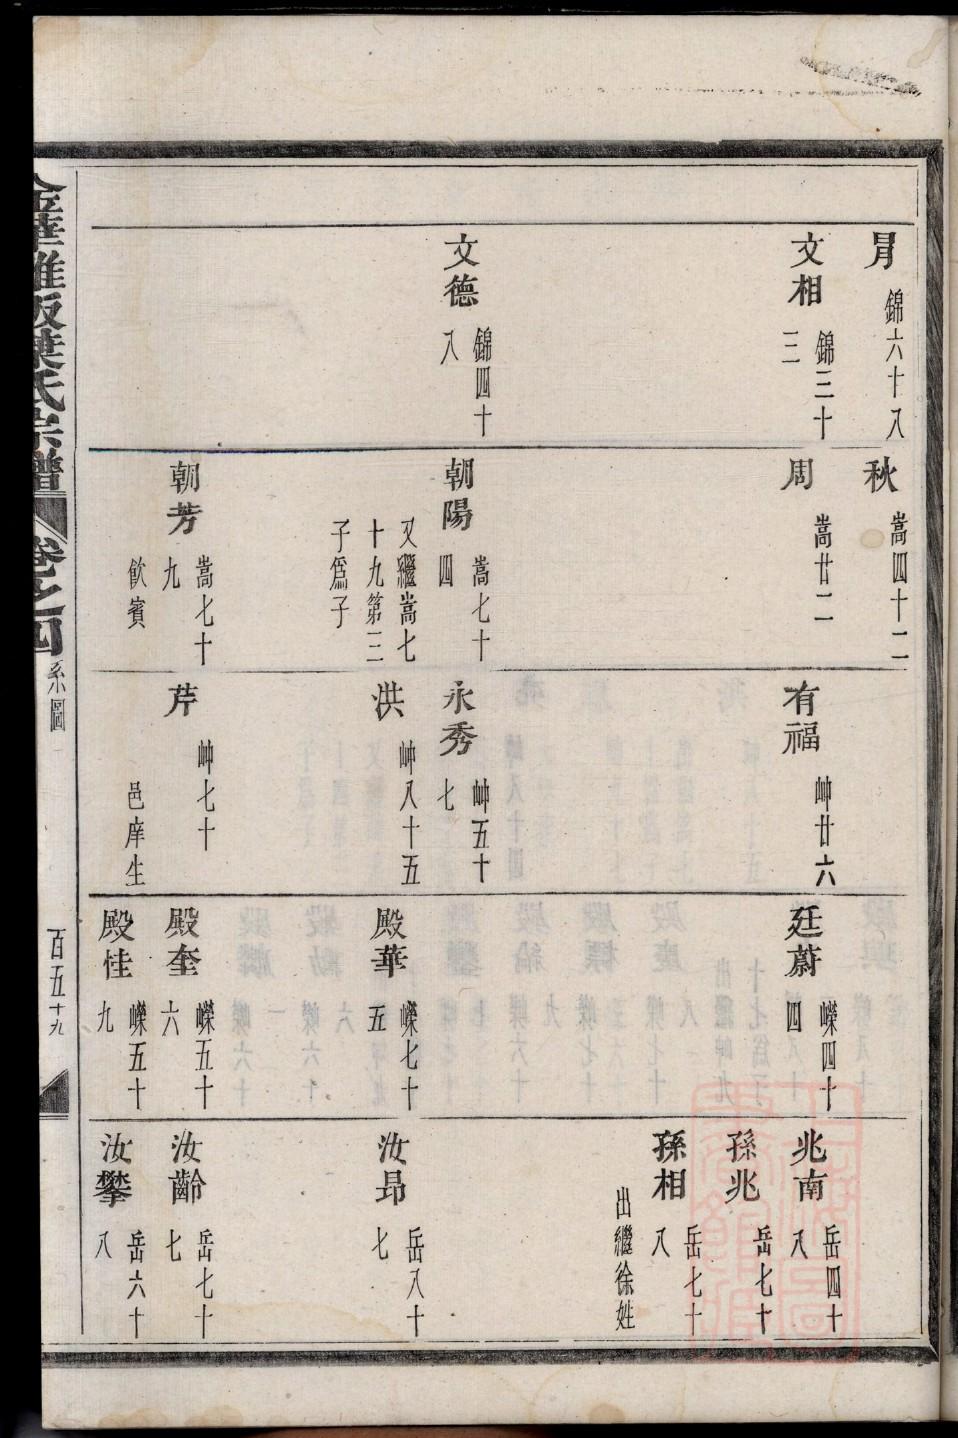 冐 錦六十八
文相 錦三十三
文德 錦四十八
秋 嵩四十二
周 嵩廿二
朝陽 嵩七十四
又繼嵩七十九第三子爲子
朝芳 嵩七十九
飲賓
有福 峀廿六
永秀 峀五十七
洪 峀八十五
芹 峀七十
邑庠生
廷蔚 嶸四十四
殿華 嶸七十五
殿奎 嶸五十六
殿佳 嶸五十九
兆南 岳四十八
孫兆 岳七十
孫相 岳七十八
出繼徐姓
汝昂 岳八十七
汝齡 岳七十七
汝攀 岳六十八
葉氏宗譜
卷之四
系圖
百五十九